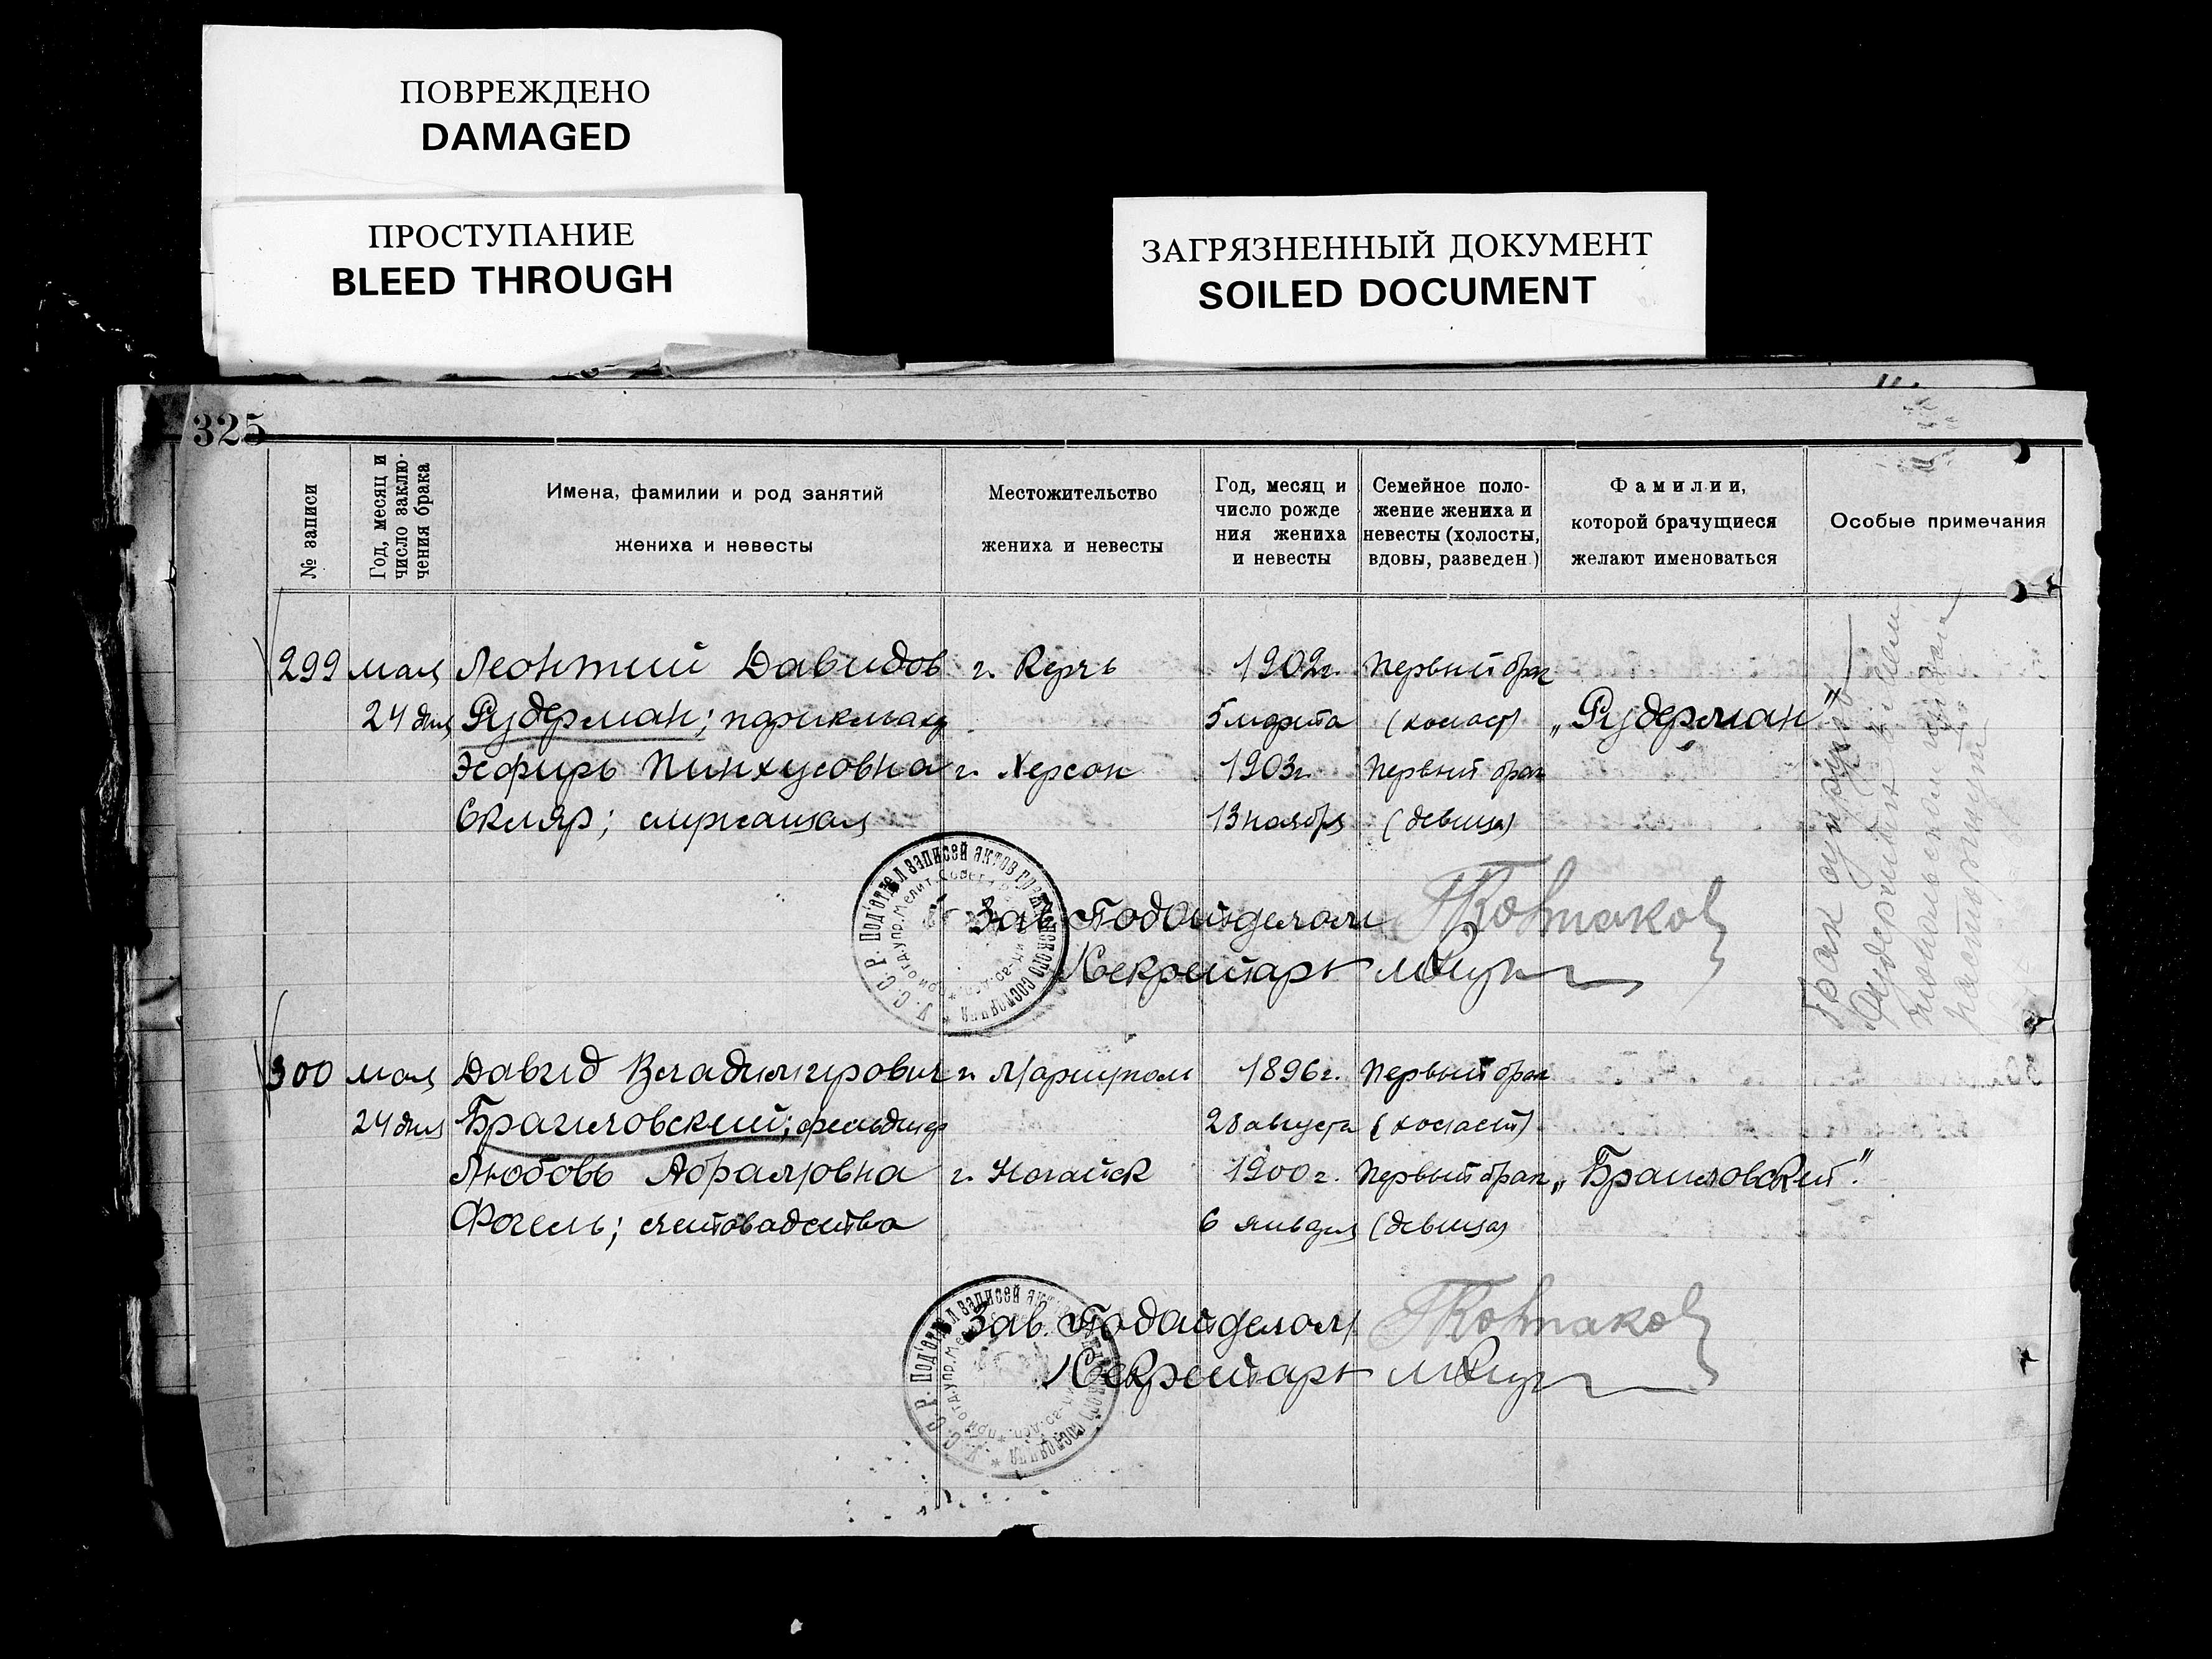 ПОВРЕЖДЕНО
DAMAGED
ПРОСТУПАНИЕ
BLEED THROUGH
ЗАГРЯЗНЕННЫЙ ДОКУМЕНТ
SOILED DOCUMENT
325
№ записи
Год, месяц и
число заклю-
чения брака
Имена, фамилии и род занятий
жениха и невесты
Местожительство
жениха и невесты
Год, месяц и
число рожде
ния жениха
и невесты
Семейное поло-
жение жениха и
невесты (холосты,
вдовы, разведен.)
Фамилии,
которой брачущиеся
желают именоваться
Особые примечания
299 мая Леонтий Давидов г. Керчь 1902г. Первый брак
24 дня Рудерман; парикмахер 5 марта (холост) „Рудерман"
Эсфирь Пинхусовна г. Херсон 1903г. Первый брак
Скляр; служащая 13 ноября (девица)
Брак супругов
Рудерман
расторгнут
У.С.С.Р. Под'отдел записей актов гражданского состояния
Зав. Подотделом
Секретарь
300 мая Давид Владимирович г. Мариуполь 1896г. Первый брак
24 дня Браиловский; фельдшер 28 августа (холост)
Любовь Абрамовна г. Ногайск 1900г. Первый брак „Браиловский".
Фогель; счетоводства 6 января (девица)
У.С.С.Р. Под'отдел записей актов гражданского состояния
Зав. Подотделом
Секретарь